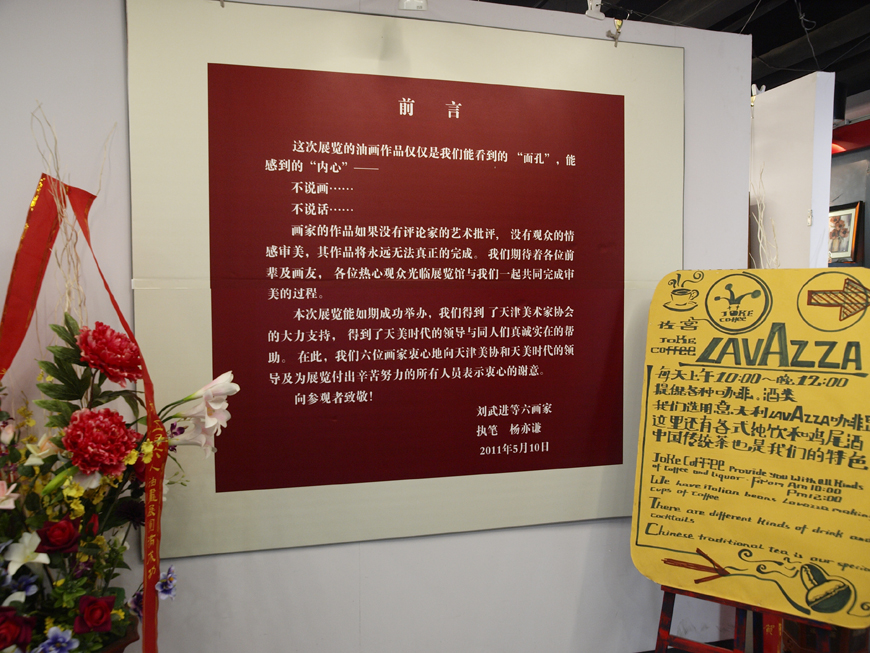 前言
这次展览的油画作品仅仅是我们能看到的“面孔”，能
感到的“内心”——
不说画……
不说话……
画家的作品如果没有评论家的艺术批评，没有观众的情
感审美，其作品将永远无法真正的完成。我们期待着各位前
辈及画友，各位热心观众光临展览馆与我们一起共同完成审
美的过程。
本次展览能如期成功举办，我们得到了天津美术家协会
的大力支持，得到了天美时代的领导与同人们真诚实在的帮
助。在此，我们六位画家衷心地向天津美协和天美时代的领
导及为展览付出辛苦努力的所有人员表示衷心的谢意。
向参观者致敬！
刘武进等六画家
执笔 杨亦谦
2011年5月10日
JOKE
COFFEE
JOKE
COFFEE
LAVAZZA
每天上午10:00～晚12:00
提供各种咖啡、酒类
我们选用意大利LAVAZZA咖啡豆
这里还有各式纯饮和鸡尾酒
中国传统茶也是我们的特色
Joke Coffee Provide you with all kinds
of Coffee and Liquor. From Am 10:00
Pm 12:00
We have italian beans Lavazza making
Cups of Coffee
There are different kinds of drink and
cocktails
Chinese traditional tea is our special